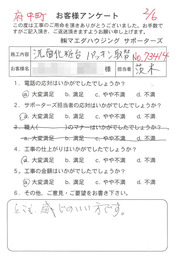 府中町 お客様アンケート 2/6
この度は工事のご用命を頂きありがとうございました。お手数で
すがご記入頂き、ご返送頂きますようお願い申し上げます。
㈱マエダハウジング サポーターズ
工事内容 洗面化粧台 パッキン取替 No,73414
お名前 様 担当者 茨木
1. 電話の応対はいかがでしたでしょうか?
大変満足 b.満足 c.やや不満 d.不満
2. サポーターズ担当者の応対はいかがでしたでしょうか?
大変満足 b.満足 c.やや不満 d.不満
3. 職人( )のマナーはいかがでしたでしょうか?
a.大変満足 b.満足 c.やや不満 d.不満
4. 工事の仕上がりはいかがでしたでしょうか?
a.大変満足 b.満足 c.やや不満 d.不満
5. 工事の金額はいかがでしたでしょうか?
a.大変満足 b.満足 c.やや不満 d.不満
6. その他、ご意見・ご要望をお書き下さい。
とても、感じのいい方です。